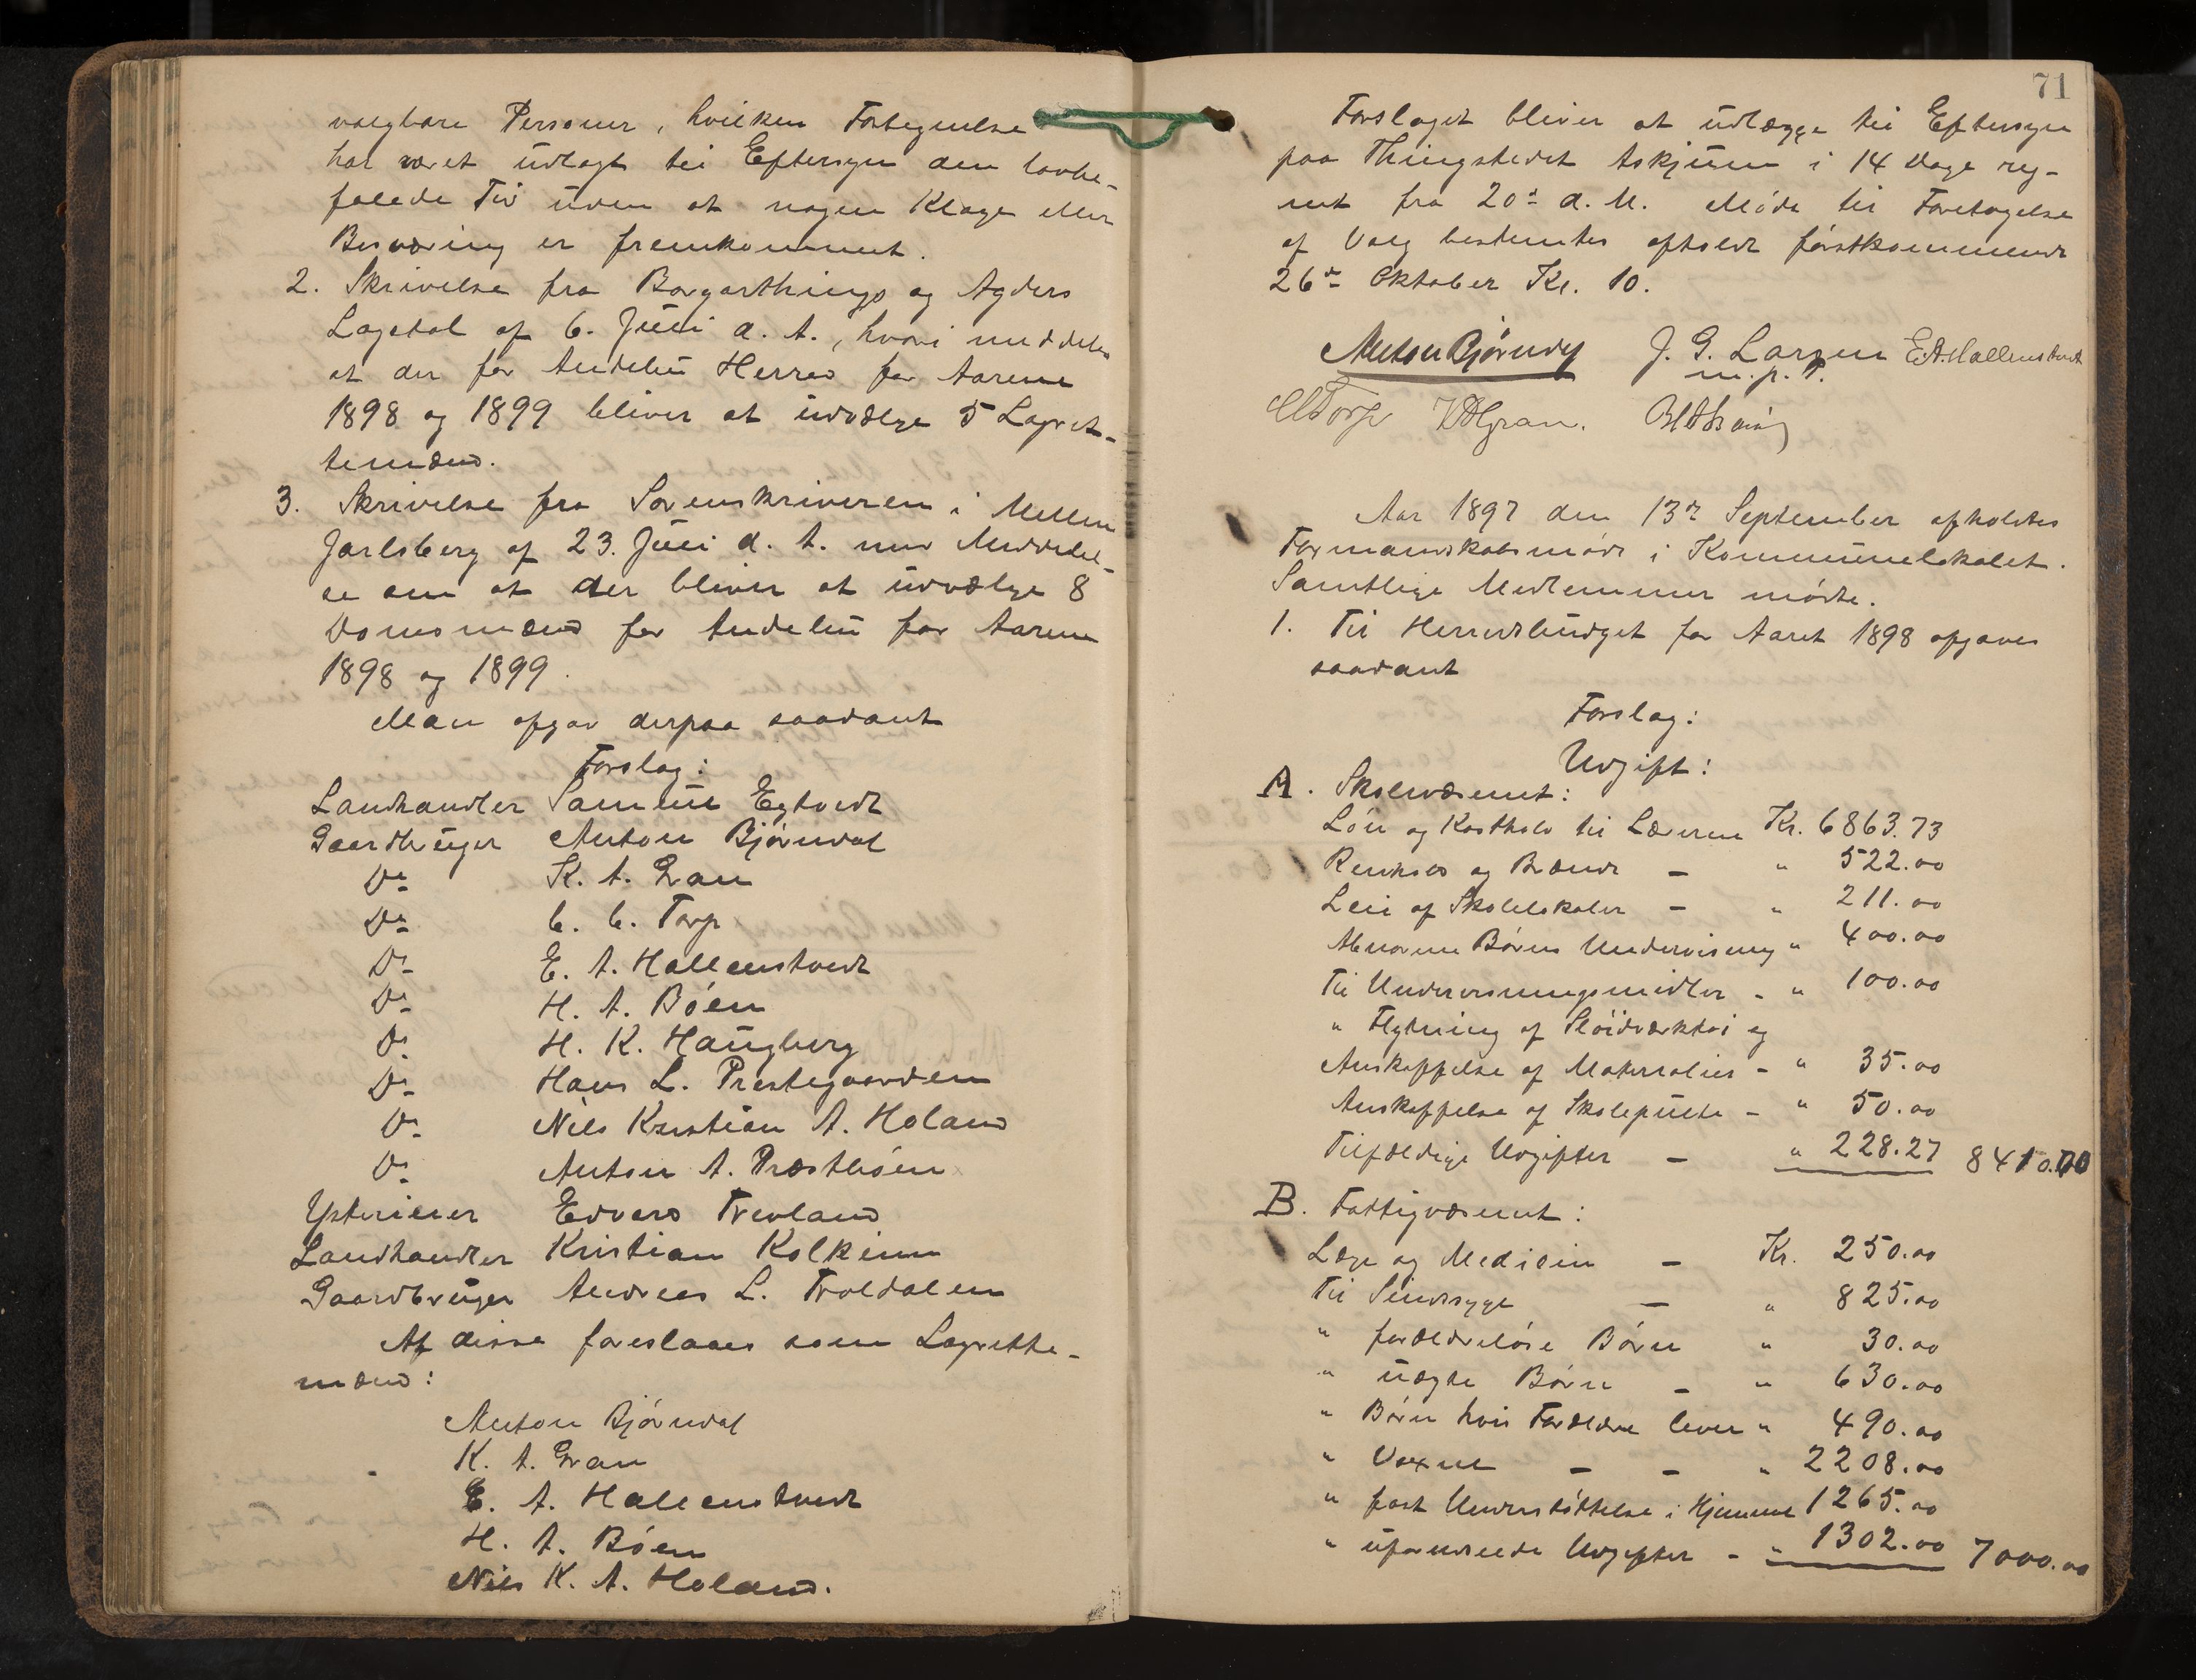 valgbare Personer, hvilken Fortegnelse
har været udlagt til Eftersyn den lovbe-
falede Tid uden at nogen Klage eller
Besværing er fremkommet.
2. Skrivelse fra Borgarthings og Agders
Lagstol af 6. Juli d. A., hvori meddeles
at der for Andebu Herred for Aarene
1898 og 1899 bliver at udvælge 5 Lagret-
temænd.
3. Skrivelse fra Sorenskriveren i Mellem
Jarlsberg af 23. Juli d. A. med Meddelel-
se om at der bliver at udvælge 8
Domsmænd for Andebu for Aarene
1898 og 1899.
Man afgav derpaa saadant
Forslag:
Landhandler Samuel Egtvedt
Gaardbruger Anton Bjørndal
Do K. A. Gran
Do C. C. Torp
Do E. A. Hallenstvedt
Do H. A. Bøen
Do H. K. Haugberg
Do Hans L. Prestegaarden
Do Nils Kristian A. Holand
Do Anton A. Præstbøen
Ysterieier Edvard Trevland
Landhandler Kristian Kolkinn
Gaardbruger Andreas L. Troldalen
Af disse foreslaaes som Lagrette-
mænd:
Anton Bjørndal
K. A. Gran
E. A. Hallenstvedt
H. A. Bøen
Nils K. A. Holand.
71
Forslaget bliver at udlægge til Eftersyn
paa Thingstedet Askjum i 14 Dage reg-
net fra 20de d. M. Møde til Foretagelse
af Valg bestemtes afholdt førstkommende
26de Oktober Kl. 10.
Anton Bjørndal J. G. Larsen E. A. Hallenstvedt
m. p. P.
CCTorp KAGran.
Aar 1897 den 13de September afholdtes
Formandskabsmøde i Kommunelokalet.
Samtlige Medlemmer mødte.
1. Til Herredsbudget for Aaret 1898 afgaves
saadant
Forslag:
Udgift:
A. Skolevæsenet:
Løn og Kosthold til Lærerne Kr. 6863.73
Renhold og Brænde - " 522.00
Leie af Skolelokaler - " 211.00
Abnorme Børns Undervisning " 400.00
Til Undervisningsmidler - " 100.00
" Flytning af Sløidværktøi og
Anskaffelse af Materialier - " 35.00
Anskaffelse af Skolepulte - " 50.00
Tilfældige Udgifter - " 228.27 8410.00
B. Fattigvæsenet:
Læge og Medicin - Kr. 250.00
Til Sindssyge - " 825.00
" forældreløse Børn " 30.00
" uægte Børn - " 630.00
" Børn hvis Forældre lever " 490.00
" Voxne - - " 2208.00
" fast Understøttelse i Hjemmet 1265.00
" uforudseede Udgifter - " 1302.00 7000.00